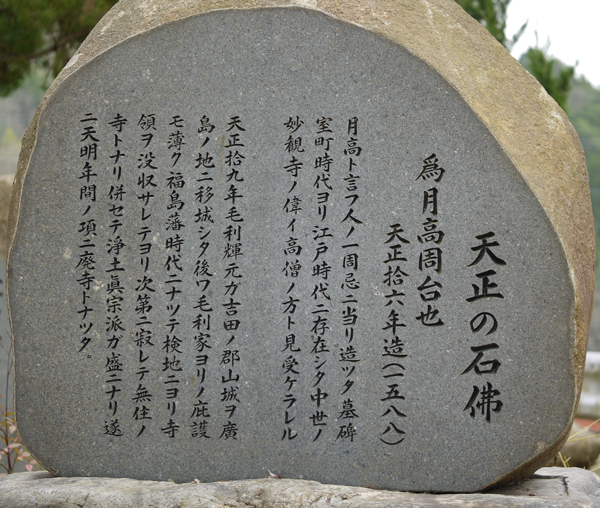 天正の石佛
為月高周台也
天正拾六年造(一五八八)
月高ト言フ人ノ一周忌ニ当リ造ツタ墓碑
室町時代ヨリ江戸時代ニ存在シタ中世ノ
妙観寺ノ偉イ高僧ノ方ト見受ケラレル
天正拾九年毛利輝元ガ吉田ノ郡山城ヲ廣
島ノ地ニ移城シタ後ワ毛利家ヨリノ庇護
モ薄ク福島藩時代ニナツテ検地ニヨリ寺
領ヲ没収サレテヨリ次第ニ寂レテ無住ノ
寺トナリ併セテ浄土眞宗派ガ盛ニナリ遂
ニ天明年間ノ項ニ廃寺トナツタ。